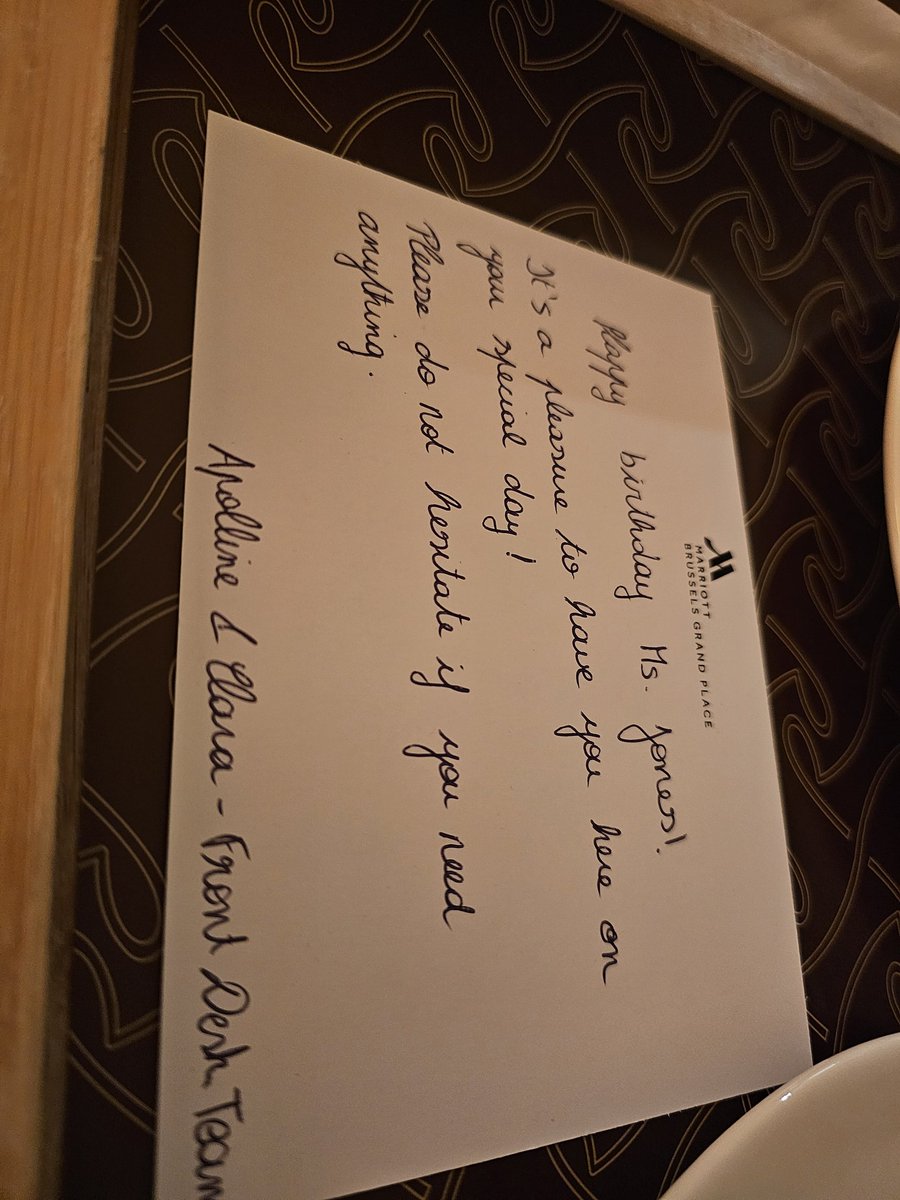 MARRIOTT
BRUSSELS GRAND PLACE
Happy birthday Ms. Jones!
It's a pleasure to have you here on
your special day!
Please do not hesitate if you need
anything.
Apolline & Clara - Front Desk Team